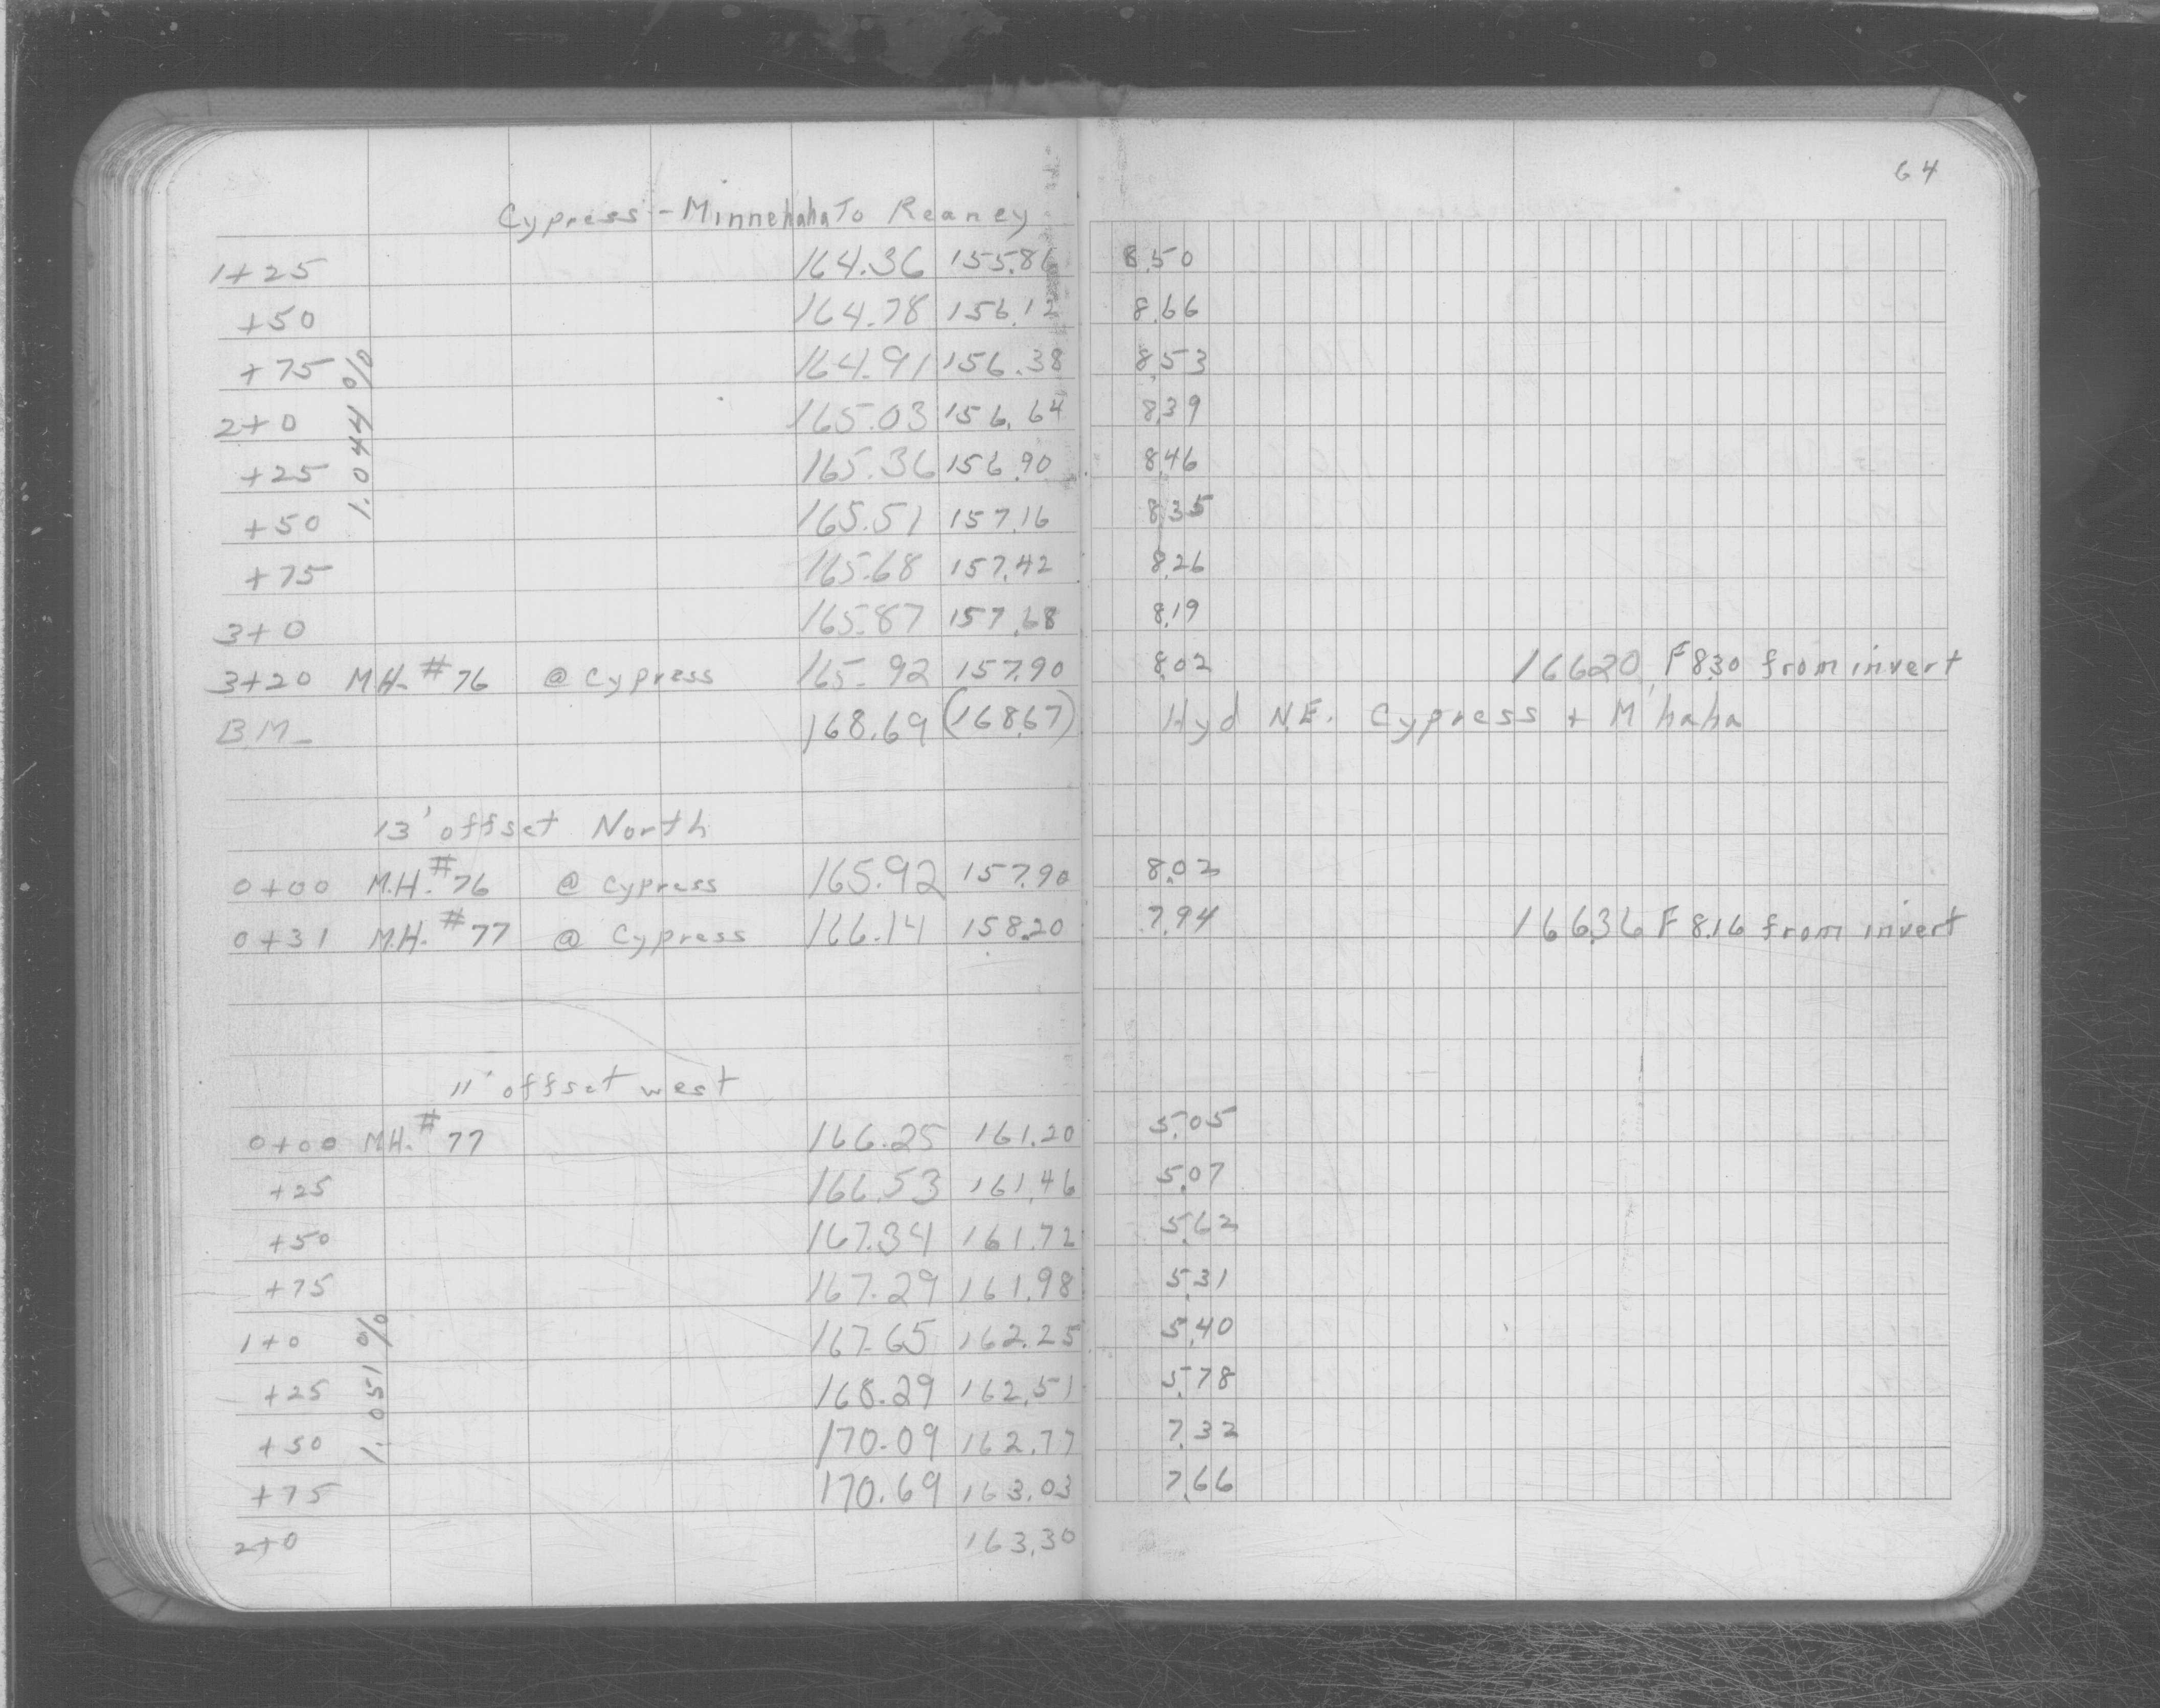 64
Cypress - Minnehaha To Reaney
1+25 164.36 155.86 8.50
+50 164.78 156.12 8.66
+75 164.91 156.38 8.53
2+0 165.03 156.64 8.39
+25 165.36 156.90 8.46
+50 165.51 157.16 8.35
+75 165.68 157.42 8.26
3+0 165.87 157.68 8.19
1.044 %
3+20 M.H. #76 @ Cypress 165.92 157.90 8.02 166.20 F 8.30 from invert
B.M. 168.69 (168.67) Hyd N.E. Cypress + M'haha
13' offset North
0+00 M.H. #76 @ Cypress 165.92 157.90 8.02
0+31 M.H. #77 @ Cypress 166.14 158.20 7.94 166.36 F 8.16 from invert
11' offset west
0+00 M.H. #77 166.25 161.20 5.05
+25 166.53 161.46 5.07
+50 167.34 161.72 5.62
+75 167.29 161.98 5.31
1+0 167.65 162.25 5.40
+25 168.29 162.51 5.78
+50 170.09 162.77 7.32
+75 170.69 163.03 7.66
1.051 %
2+0 163.30